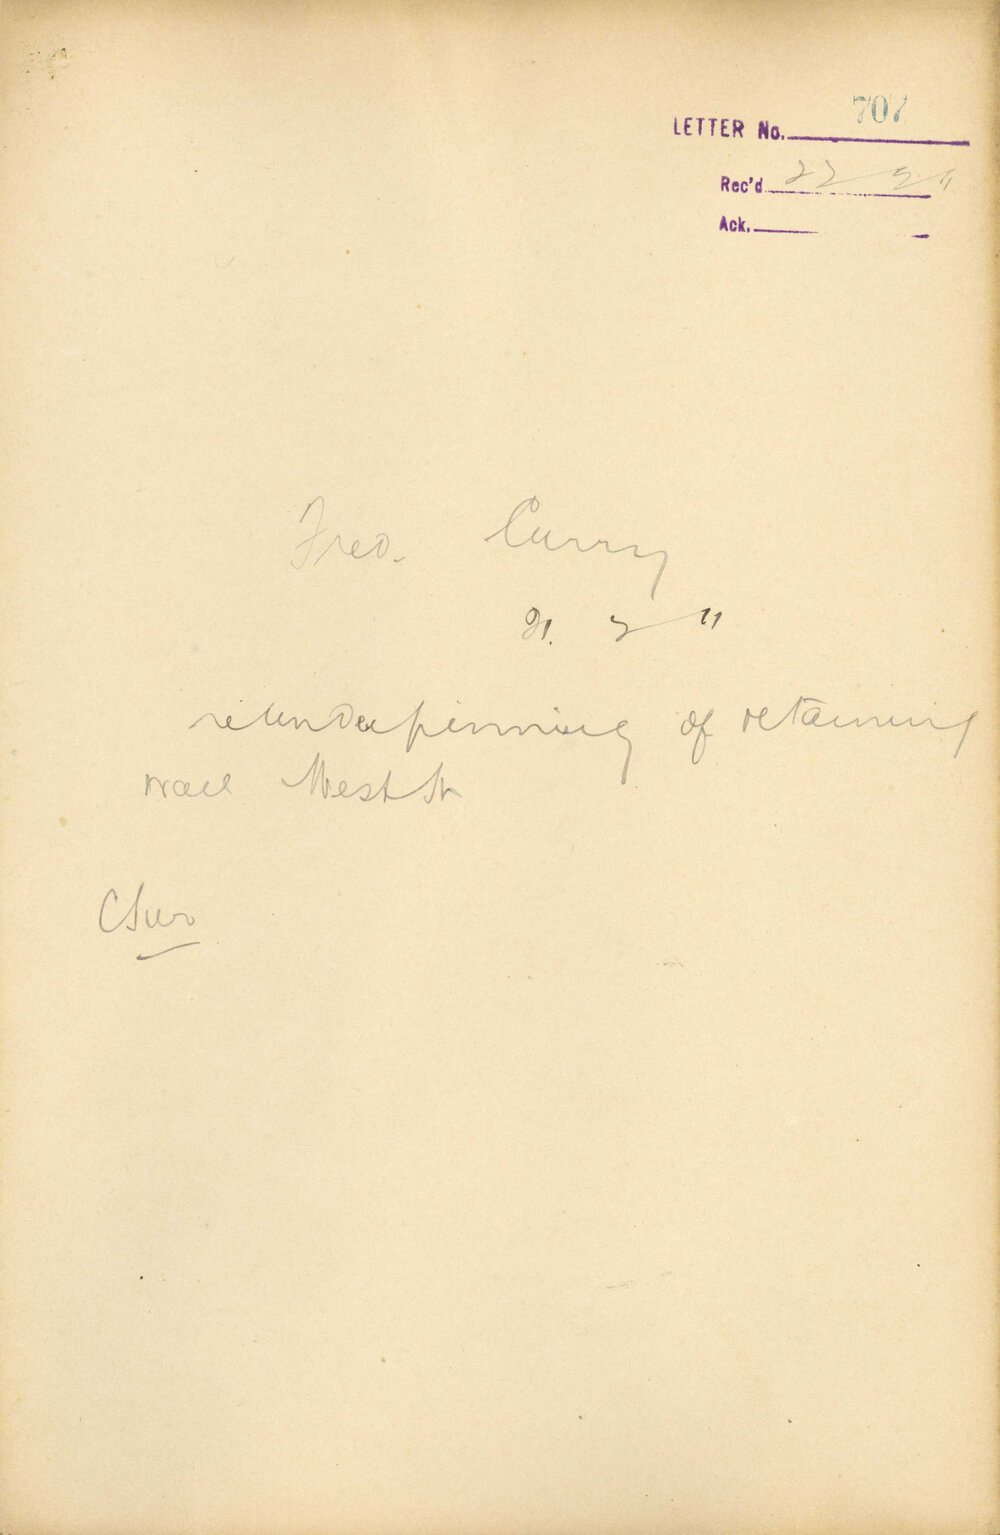 LETTER No. 707
Rec'd 22 2 11
Ack.
Fred. Curry
21. 2 11
re underpinning of retaining
wall West St